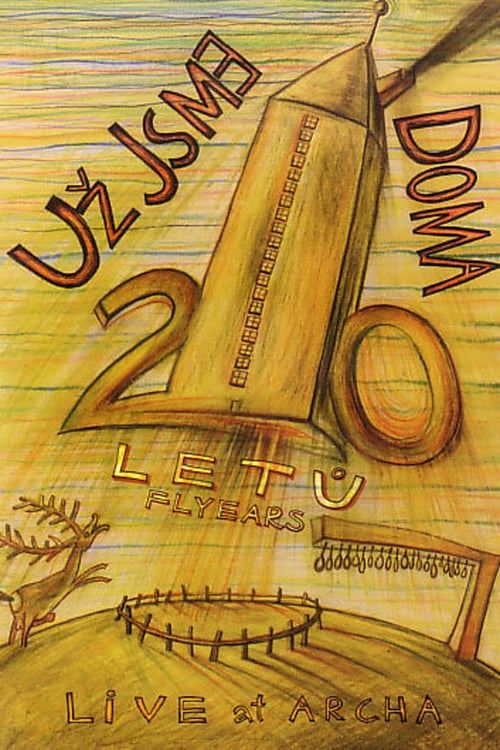 UŽ JSME
DOMA
20
LETŮ
FLYEARS
LiVE at ARCHA